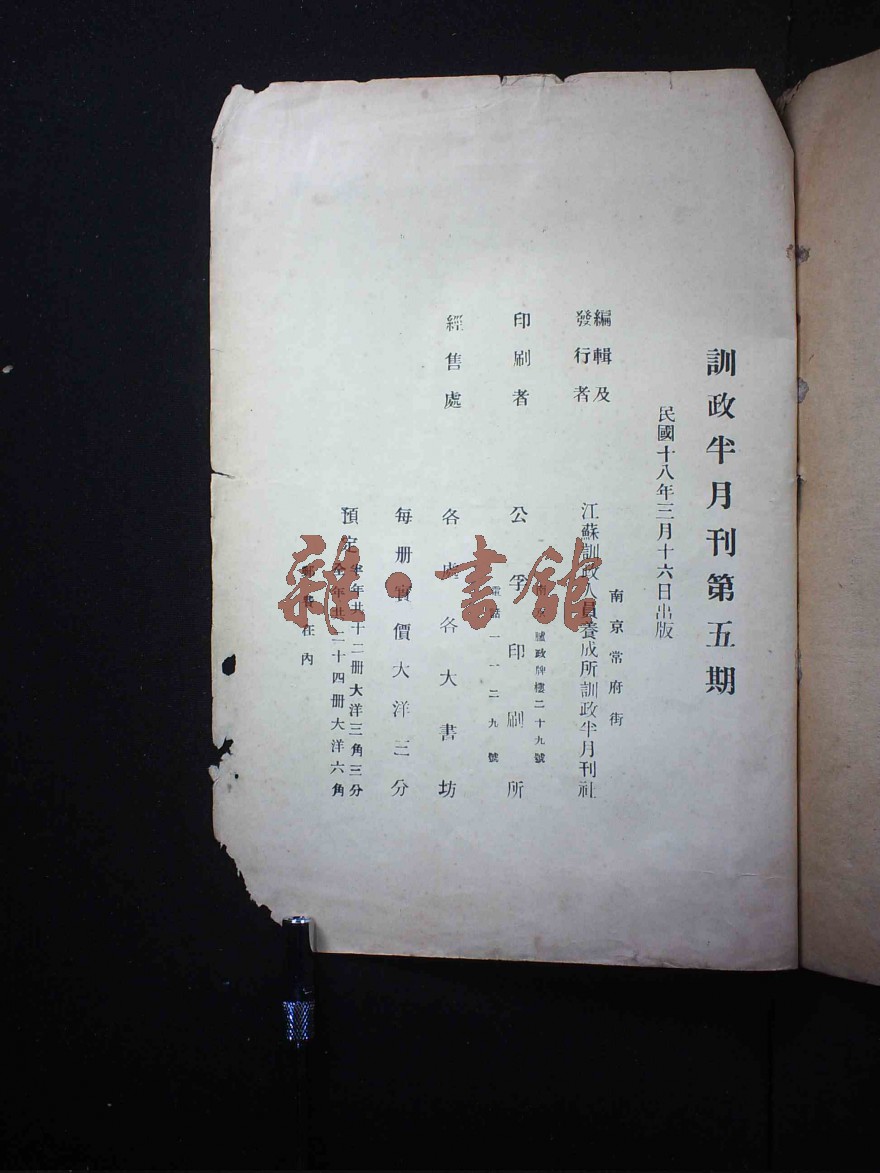 訓政半月刊第五期
民國十八年三月十六日出版
編輯及
發行者
南京常府街
江蘇訓政人員養成所訓政半月刊社
印刷者
臚政牌樓二十九號
公孚印刷所
電話一一二九號
經售處
各處各大書坊
每册實價大洋三分
預定
半年共十二册大洋三角三分
全年共二十四册大洋六角
郵費在內
雜·書館